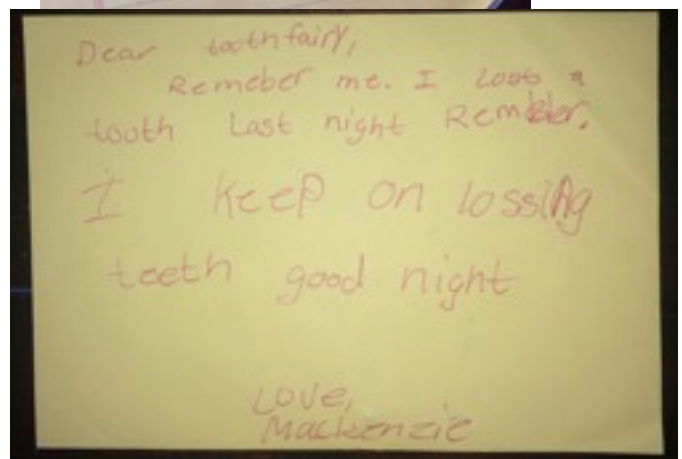 Dear toothfairy,
Remeber me. I loos a
tooth Last night Rember.
I keep on lossing
teeth good night
Love,
Mackenzie